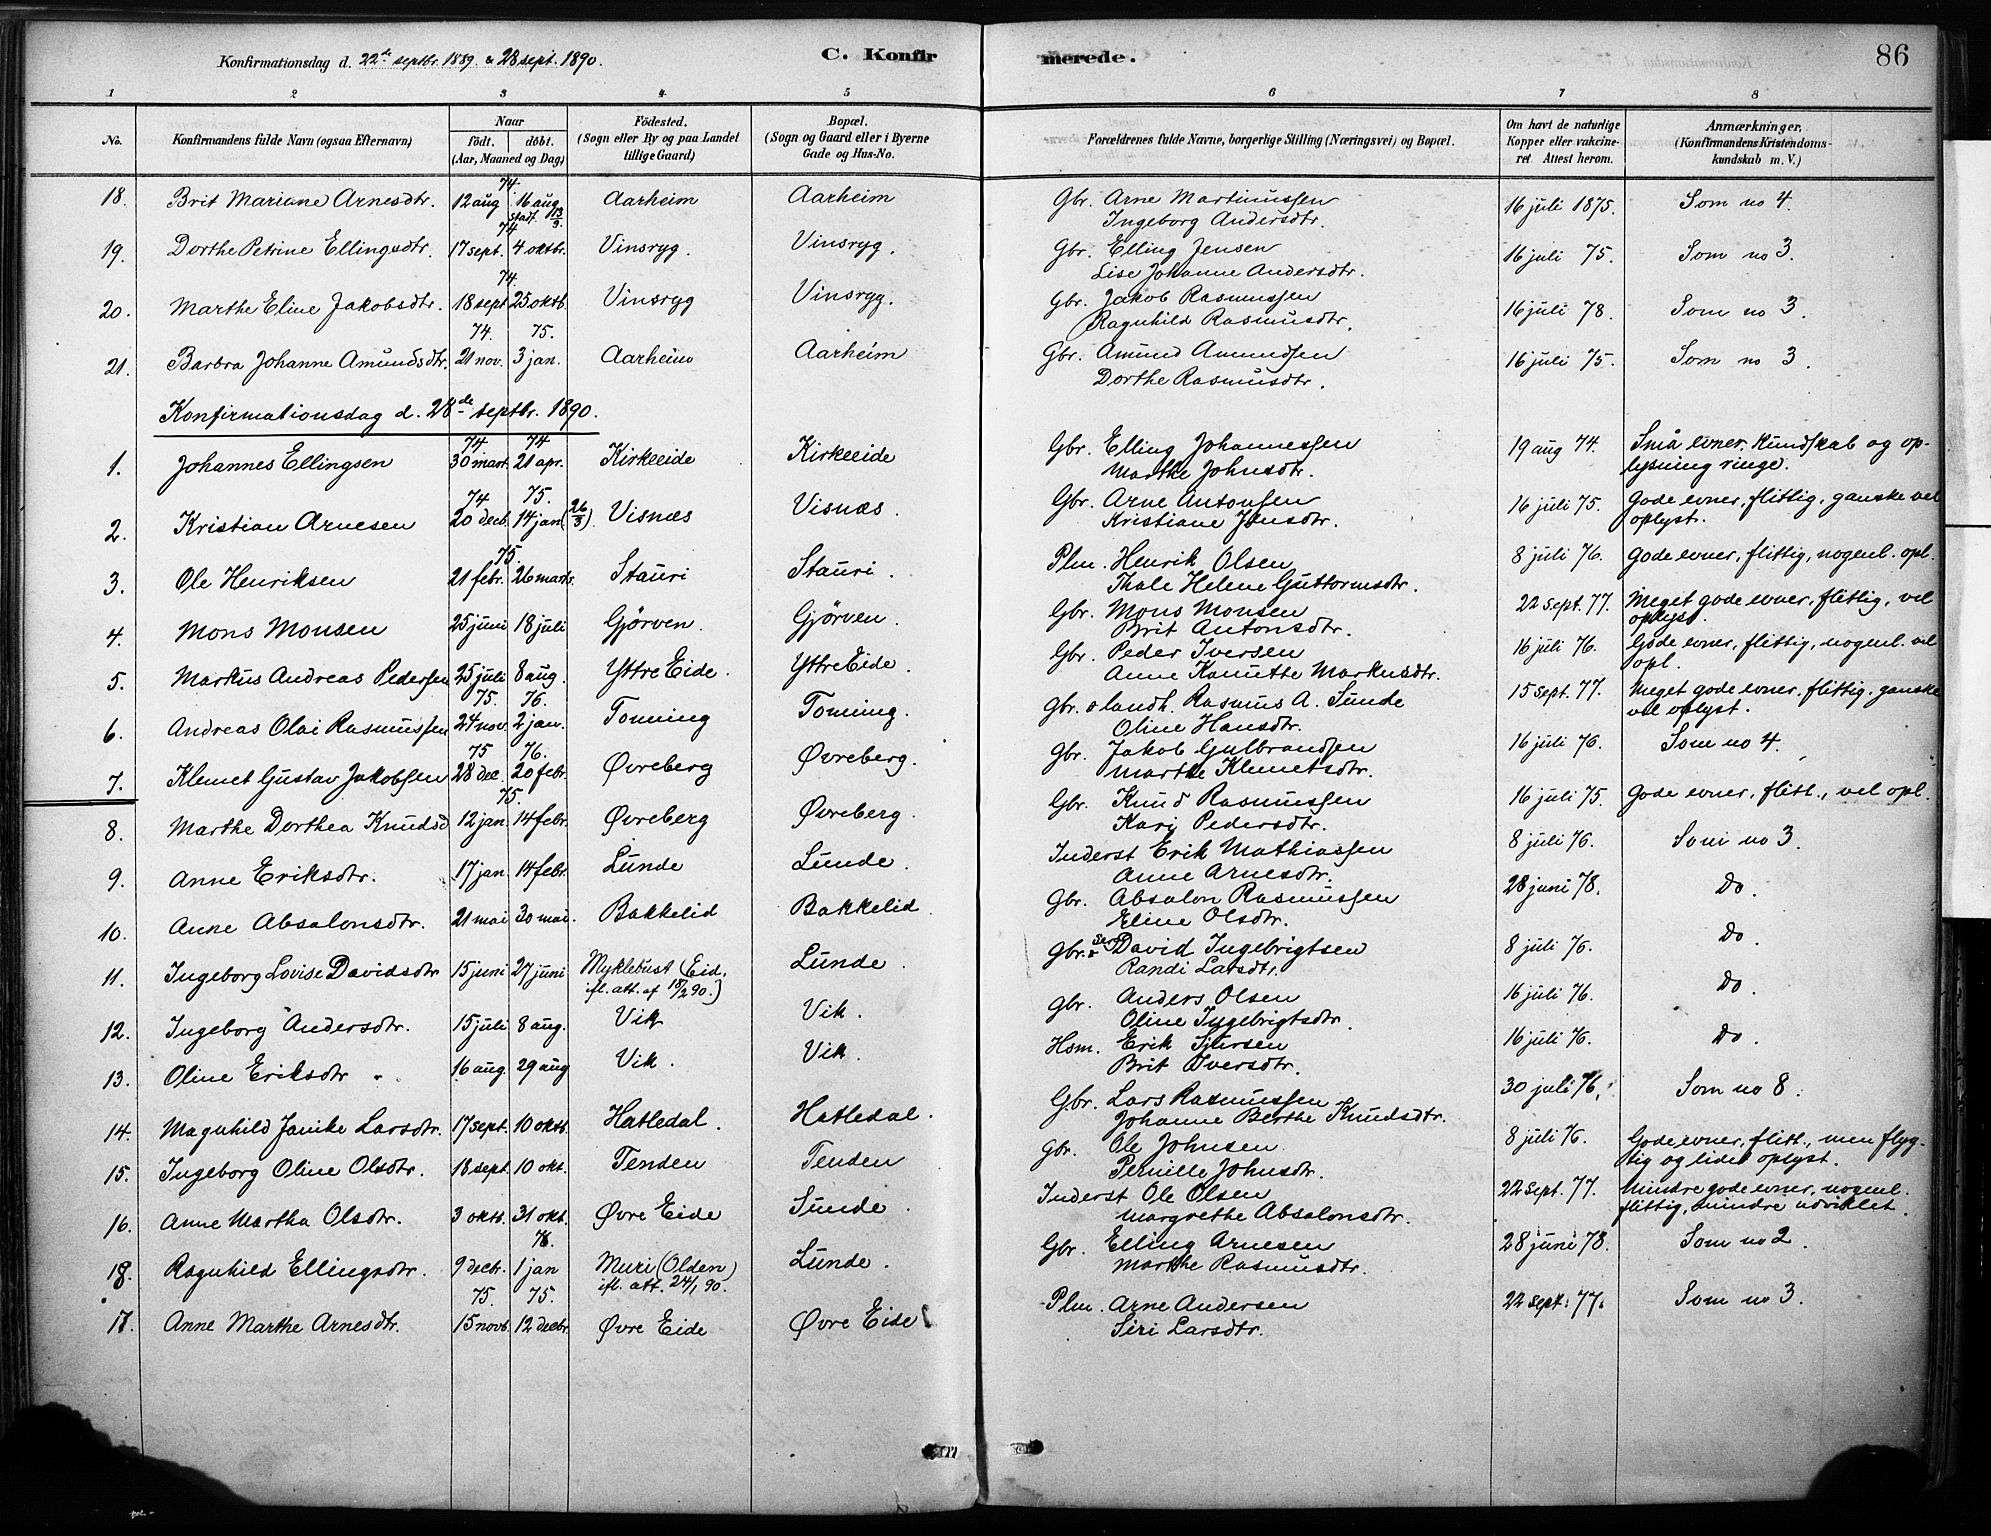 Konfirmationsdag d. 22de septbr. 1889. & 28 sept. 1890.
C. Konfirmerede.
86
1 2 3 4 5 6 7 8
No. Konfirmandens fulde Navn (ogsaa Efternavn) Naar födt. döbt. (Aar, Maaned og Dag) Födested. (Sogn eller By og paa Landet tillige Gaard) Bopæl. (Sogn og Gaard eller i Byerne Gade og Hus-No. Forældrenes fulde Navne, borgerlige Stilling (Næringsvei) og Bopæl. Om havt de naturlige Kopper eller vakcineret Attest herom. Anmærkninger. (Konfirmandens Kristendomskundskab m. V.)
74.
18. Brit Mariane Arnesdtr. 12 aug 16 aug stadf. 113/3 Aarheim Aarheim Gbr. Arne Martinussen 16 juli 1875. Som no 4.
Ingeborg Andersdtr.
74
19. Dorthe Petrine Ellingsdtr. 17 sept. 4 oktbr. Vinsryg. Vinsryg. Gbr. Elling Jensen 16 juli 75. Som no 3.
Lise Johanne Andersdtr.
74.
20. Marthe Eline Jakobsdtr. 18 sept 25 oktb. Vinsryg Vinsryg. Gbr. Jakob Rasmussen 16 juli 78. Som no 3.
Ragnhild Rasmusdtr.
74. 75.
21. Barbra Johanne Amundsdtr. 21 nov. 3 jan. Aarheim Aarheim Gbr. Amund Amundsen 16 juli 75. Som no 3.
Dorthe Rasmusdtr.
Konfirmationsdag d. 28de septbr. 1890.
74 74
1. Johannes Ellingsen 30 mart. 21 apr. Kirkeeide Kirkeeide Gbr. Elling Johannessen 19 aug 74. Små evner. Kundskab og op-
Marthe Johnsdtr. lysning ringe.
74 75.
2. Kristian Arnesen 20 decb. 14 jan (26/3). Visnæs Visnæs. Gbr. Arne Antonsen 16 juli 75. Gode evner, flittig, ganske vel
Kristiane Jonsdtr. oplyst.
75.
3. Ole Henriksen 21 febr. 26 marts Stauri Stauri. Plm. Henrik Olsen 8 juli 76. Gode evner, flittig, nogenl. opl.
Thale Helene Guttormsdtr.
4. Mons Monsen 25 juni 18 juli Gjørven. Gjørven. Gbr. Mons Monsen 22 sept. 77. Meget gode evner. flittig, vel
Brit Antonsdtr. oplyst.
5. Markus Andreas Pedersen 25 juli 8 aug. Yttre Eide. Yttre Eide. Gbr. Peder Iversen 16 juli 76. Gode evner, flittig, nogenl. vel
Anne Knutte Markusdtr. opl.
75. 76.
6. Andreas Olai Rasmussen 24 nov. 2 jan. Tonning Tonning. Gbr. o landh. Rasmus A. Sunde 15 sept. 77. Meget gode evner. flittig. ganske
Oline Hansdtr. vel oplyst.
75 76.
7. Klemet Gustav Jakobsen 28 dec. 20 febr. Øvreberg Øvreberg. Gbr. Jakob Gulbrandsen 16 juli 76. Som no 4.
Marthe Klemetsdtr.
75.
8. Marthe Dorthea Knudsd 12 jan. 14 febr. Øvreberg Øvreberg. Gbr. Knud Rasmussen 16 juli 75. Gode evner, flitt., vel opl.
Kari Pedersdtr.
9. Anne Eriksdtr. 17 jan. 14 febr. Lunde Lunde. Inderst Erik Mathiassen 8 juli 76. Som no 3.
Anne Arnesdtr.
10. Anne Absalonsdtr. 21 mai 30 mai. Bakkelid Bakkelid. Gbr. Absalon Rasmussen 28 juni 78. Do.
Eline Olsdtr.
11. Ingeborg Lovise Davidsdtr 15 juni 27 juni Myklebust (Eid. Lunde. Gbr. David Ingebrigtsen 8 juli 76. Do.
ifl. att. af 18/2 90.) Randi Larsdtr.
12. Ingeborg Andersdtr. 15 juli 8 aug. Vik Vik. Gbr. Anders Olsen 16 juli 76. Do.
Oline Ingebrigtsdtr.
13. Oline Eriksdtr 16 aug. 29 aug Vik. Vik. Hsm. Erik Sjursen 16 juli 76. Do.
Brit Iversdtr.
14. Magnhild Janike Larsdtr. 17 sept. 10 oktb. Hatledal. Hatledal. Gbr. Lars Rasmussen 30 juli 76. Som no 8.
Johanne Berthe Knudsdtr.
15. Ingeborg Oline Olsdtr. 18 sept. 10 okt. Tenden Tenden Gbr. Ole Johnsen 8 juli 76. Gode evner, flitt., men flyg-
Pernille Johnsdtr. tig og lidet oplyst.
16. Anne Martha Olsdtr. 3 oktb. 31 okt. Øvre Eide Sunde. Inderst Ole Olsen 22 sept. 77. Mindre gode evner, nogenl.
Margrethe Absalonsdtr. flittig, mindre udviklet.
76.
18. Ragnhild Ellingsdtr. 9 decbr. 1 jan Muri (Olden) Lunde. Gbr. Elling Arnesen 28 juni 78. Som no 2.
ifl. att. 24/1 90. Marthe Rasmusdtr.
75. 75.
17. Anne Marthe Arnesdtr. 15 novb. 12 decbr. Øvre Eide Øvre Eide Plm. Arne Andersen 22 sept. 77. Som no 3.
Siri Larsdtr.